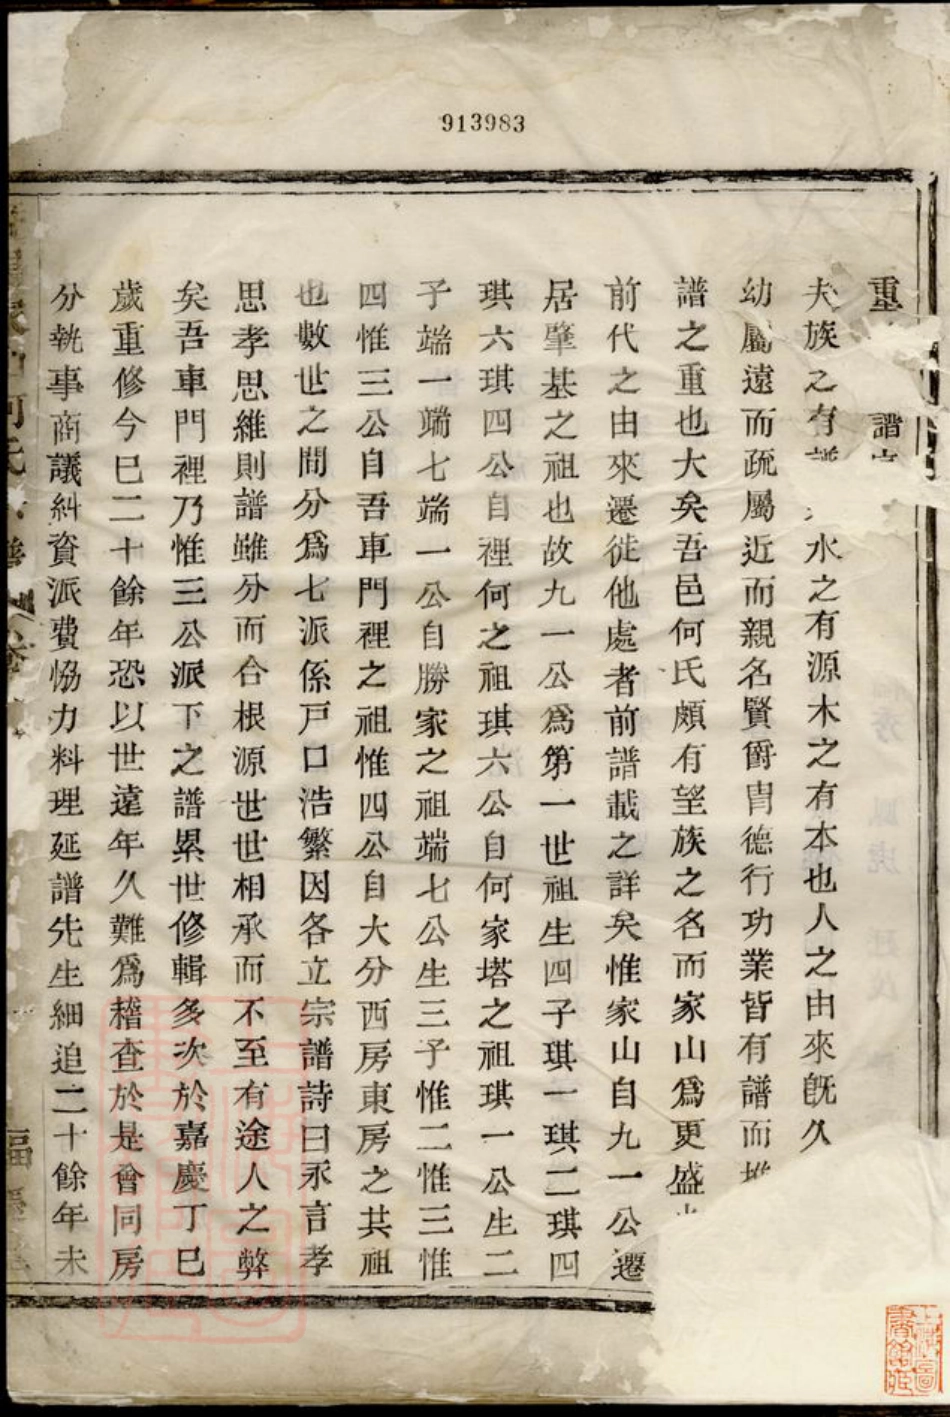 913983
重 譜
夫族之有 水之有源木之有本也人之由來旣久
幼屬遠而疏屬近而親名賢爵冑德行功業皆有譜而
譜之重也大矣吾邑何氏頗有望族之名而家山爲更盛
前代之由來遷徙他處者前譜載之詳矣惟家山自九一公遷
居肇基之祖也故九一公爲第一世祖生四子琪一琪二琪四
琪六琪四公自裡何之祖琪六公自何家塔之祖琪一公生二
子端一端七端一公自勝家之祖端七公生三子惟二惟三惟
四惟三公自吾車門裡之祖惟四公自大分西房東房之其祖
也數世之間分爲七派係戸口浩繁因各立宗譜詩曰永言孝
思孝思維則譜雖分而合根源世世相承而不至有途人之弊
矣吾車門裡乃惟三公派下之譜累世修輯多次於嘉慶丁巳
歲重修今巳二十餘年恐以世遠年久難爲稽查於是會同房
分執事商議糾資派費恊力料理延譜先生細追二十餘年未